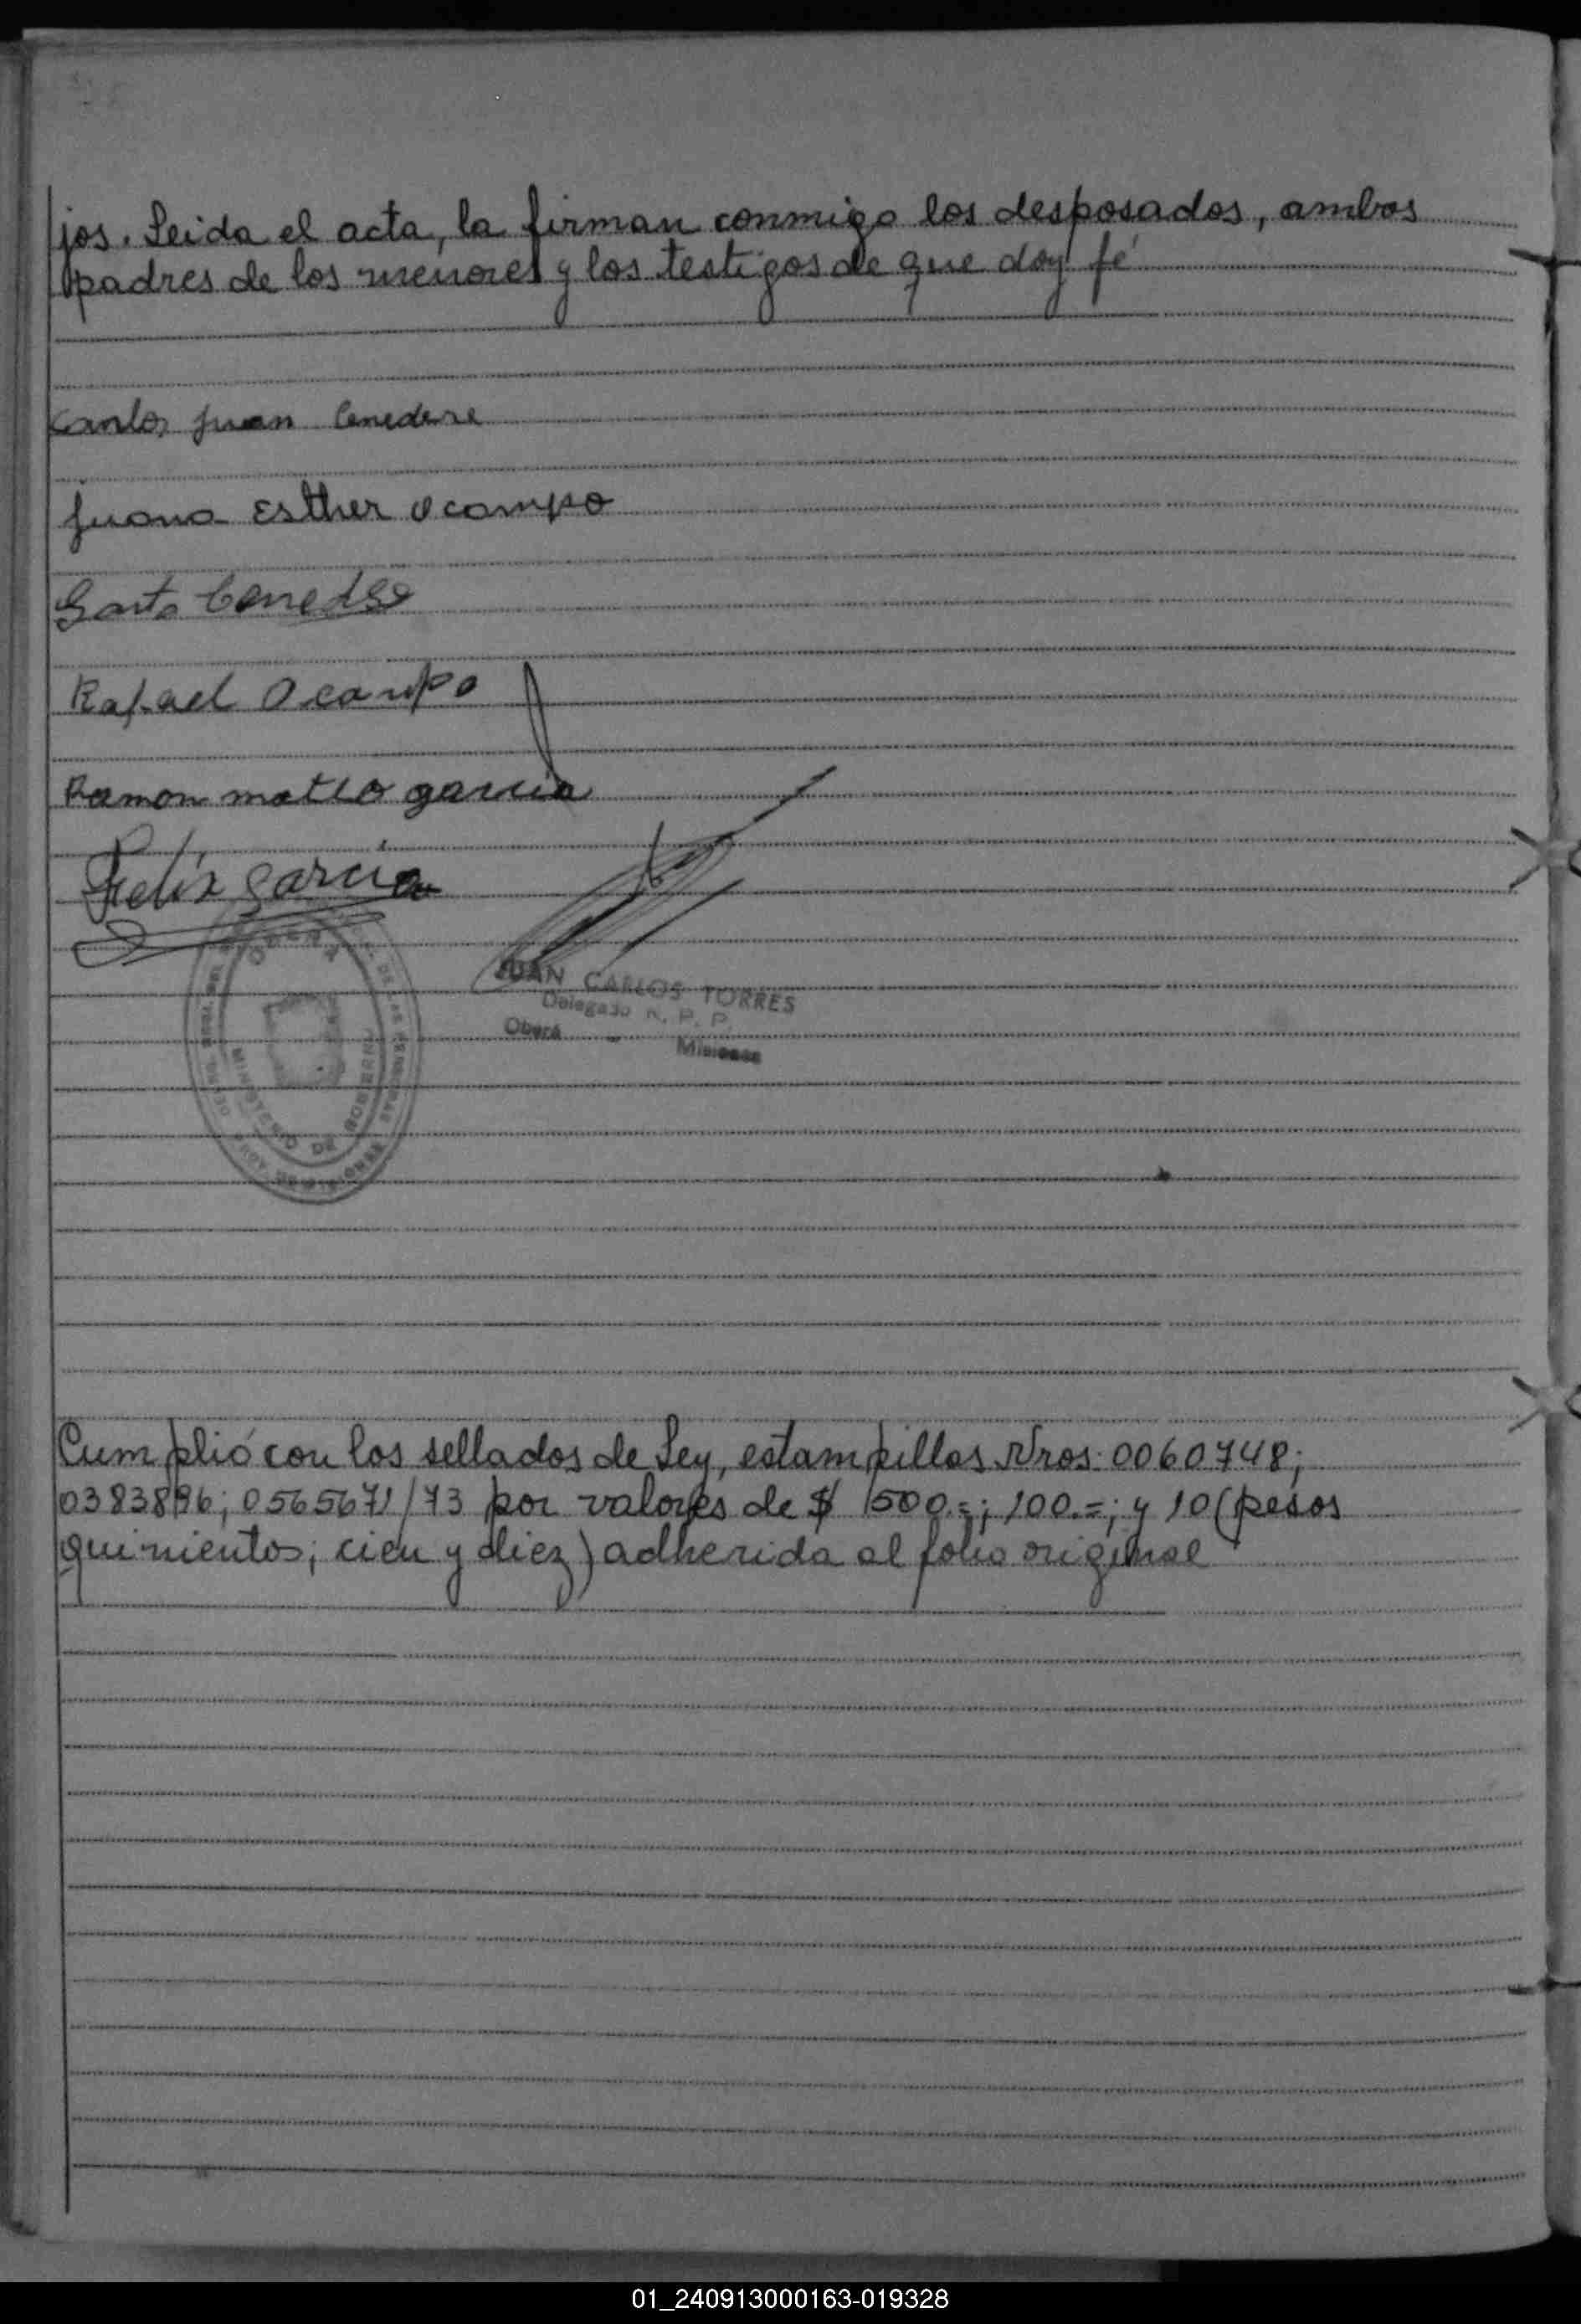 jos. Leida el acta, la firman conmigo los desposados, ambos
padres de los menores y los testigos de que doy fé
Carlos Juan Cenedese
Juana Esther Ocampo
Santo Cenedese
Rafael Ocampo
Ramon mateo garcia
Felix Garcia
JUAN CARLOS TORRES
Delegado R. P. P.
Oberá - Misiones
OBERA
MINISTERIO DE GOBIERNO
Cumplió con los sellados de Ley, estampillas Nros: 0060748;
0383896; 0565671/73 por valores de $ 500.=; 100.=; y 10 (pesos
quinientos; cien y diez) adherida al folio original
01_240913000163-019328